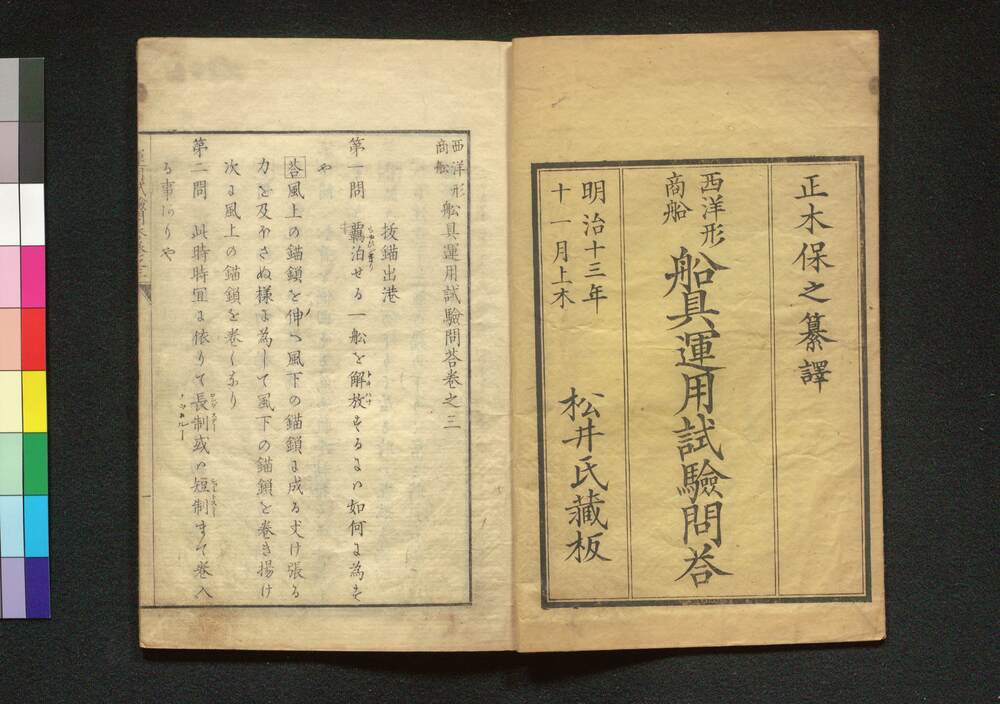 正木保之纂譯
西洋形
商船
船具運用試驗問荅
明治十三年
十一月上木
松井氏藏板
西洋形
商舩
舩具運用試驗問荅卷之三
拔錨出港
第一問 羈泊せる一舩を解放するには如何に為す
や
荅 風上の錨鎖を伸へ風下の錨鎖に成る丈け張る
力を及ほさぬ様に為して風下の錨鎖を卷き揚け
次に風上の錨鎖を卷くなり
第二問 此時時宜に依りて長制或は短制まて卷入
る事ありや